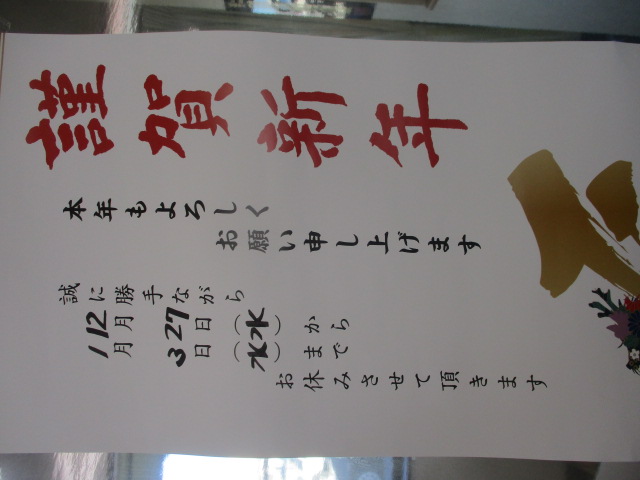 謹賀新年
本年もよろしく
お願い申し上げます
誠に勝手ながら
12月27日(水)から
1月3日(水)まで
お休みさせて頂きます